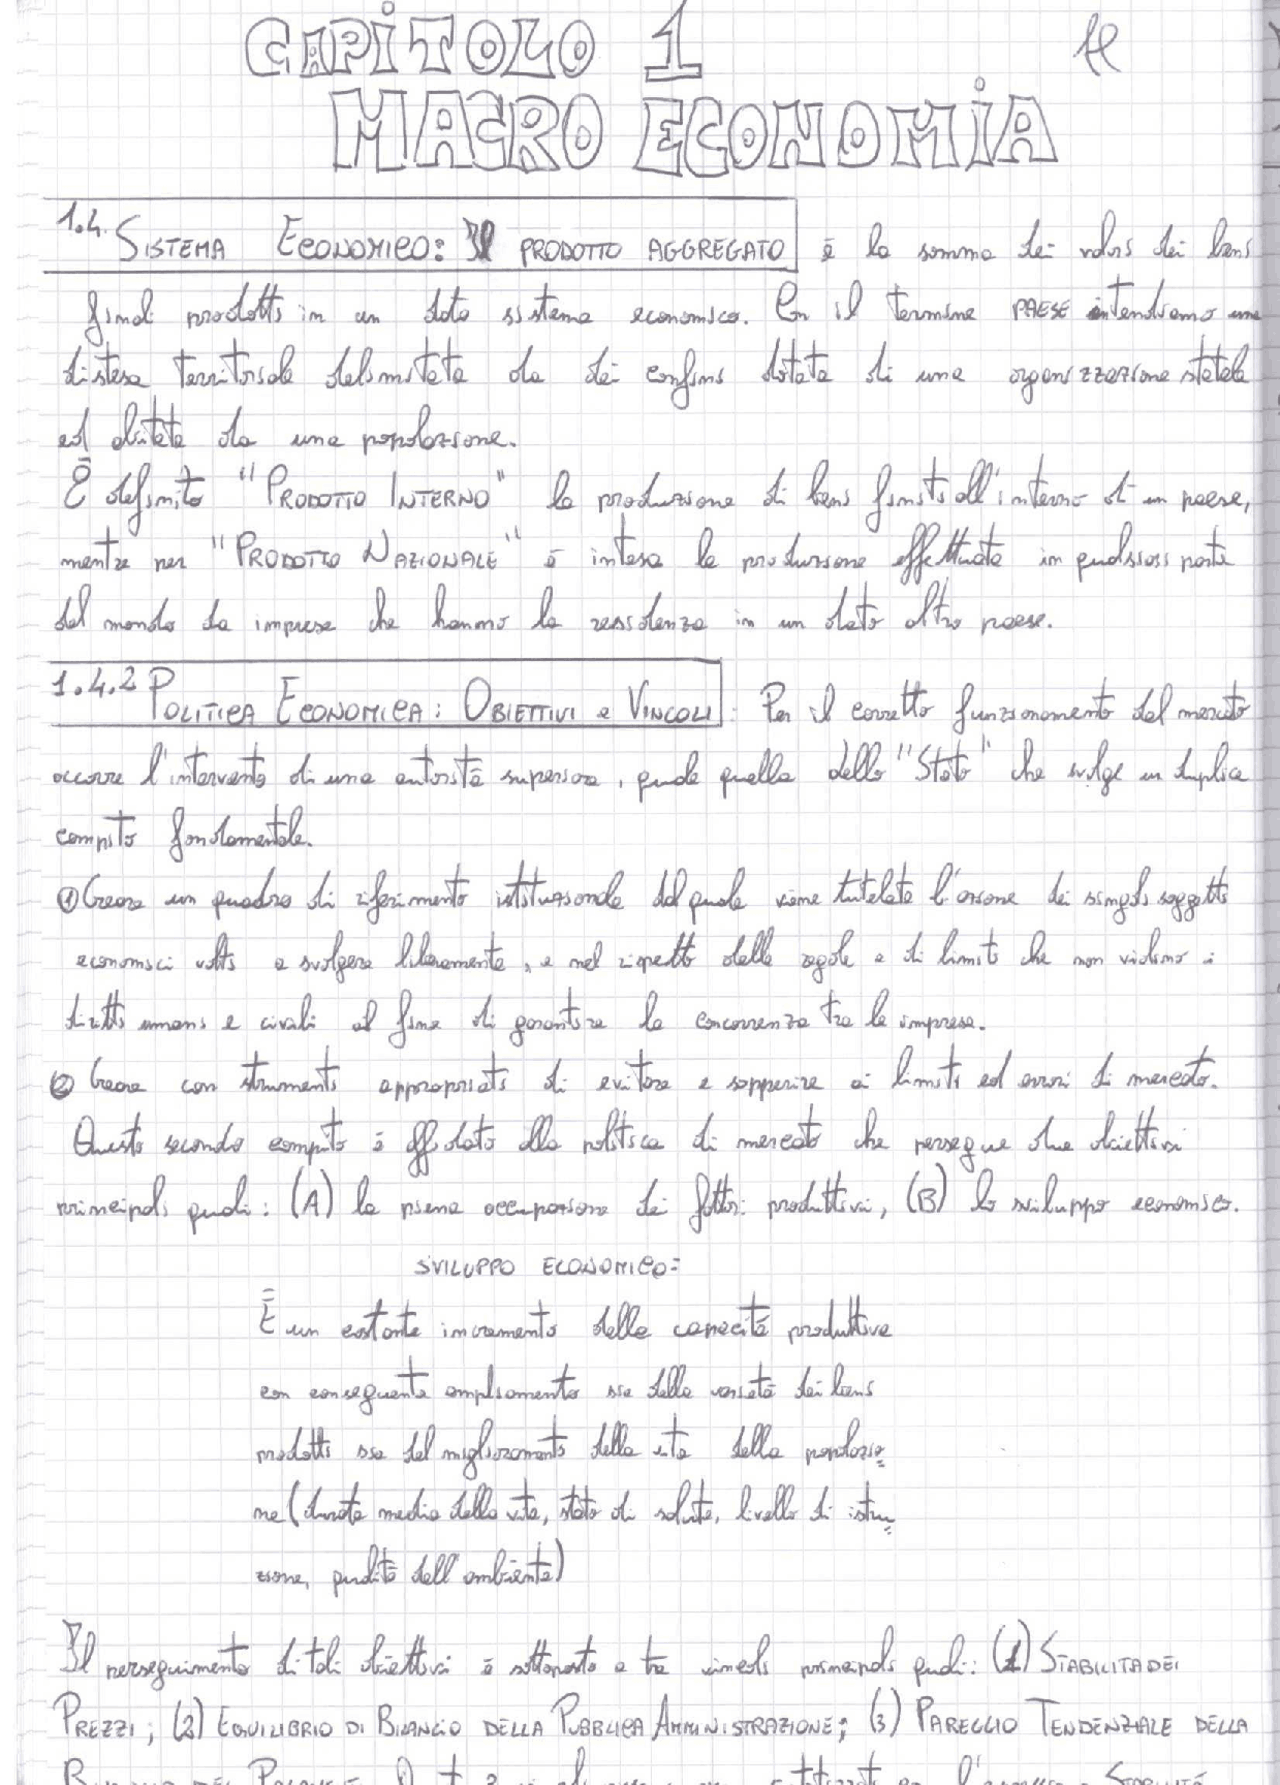 CAPITOLO 1
MACRO ECONOMIA
1.4. SISTEMA ECONOMICO: Il PRODOTTO AGGREGATO è la somma dei valori dei beni
finali prodotti in un dato sistema economico. Con il termine PAESE intendiamo una
distesa territoriale delimitata da dei confini dotata di una organizzazione statale
ed abitata da una popolazione.
È definito "PRODOTTO INTERNO" la produzione di beni finiti all'interno di un paese,
mentre per "PRODOTTO NAZIONALE" è intesa la produzione effettuata in qualsiasi parte
del mondo da imprese che hanno la residenza in un dato altro paese.
1.4.2 POLITICA ECONOMICA: OBIETTIVI e VINCOLI: Per il corretto funzionamento del mercato
occorre l'intervento di una autorità superiore, quale quella dello "Stato" che svolge un duplice
compito fondamentale.
① Creare un quadro di riferimento istituzionale dal quale viene tutelata l'azione dei singoli soggetti
economici volti a svolgere liberamente, e nel rispetto delle regole e di limiti che non vìolino i
diritti umani e civili al fine di garantire la concorrenza tra le imprese.
② Creare con strumenti appropriati di evitare e sopperire ai limiti ed errori di mercato.
Questo secondo compito è affidato alla politica di mercato che persegue due obiettivi
principali quali: (A) la piena occupazione dei fattori produttivi, (B) lo sviluppo economico.
SVILUPPO ECONOMICO:
È un costante incremento della capacità produttiva
con conseguente ampliamento sia della varietà dei beni
prodotti sia del miglioramento della vita della popolazio=
ne (durata media della vita, stato di salute, livello di istru=
zione, qualità dell'ambiente)
Il perseguimento di tali obiettivi è sottoposto a tre vincoli principali quali: (1) STABILITA DEI
PREZZI; (2) EQUILIBRIO DI BILANCIO DELLA PUBBLICA AMMINISTRAZIONE; (3) PAREGGIO TENDENZIALE DELLA